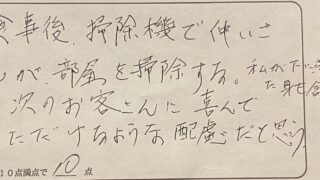 食事後、掃除機で仲いさ
が、部屋を掃除する。私が
次のお客さんに喜んで
ただけるような配慮だと思う
10点満点で 10 点